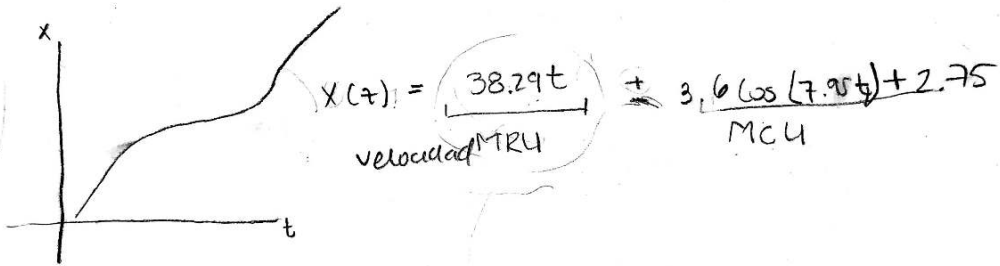 x
X(t) = 38.29t ± 3,6 Cos (7.95t) + 2.75
velocidad MRU
MCU
t